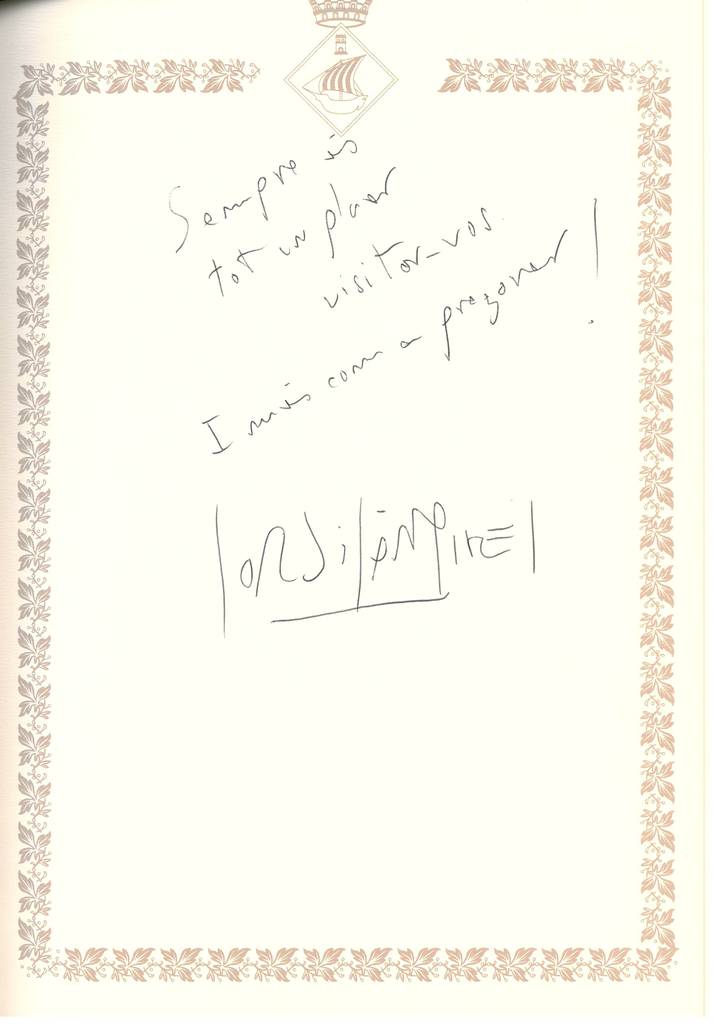 Sempre és
tot un plaer
visitar-vos.
I més com a pregoner!